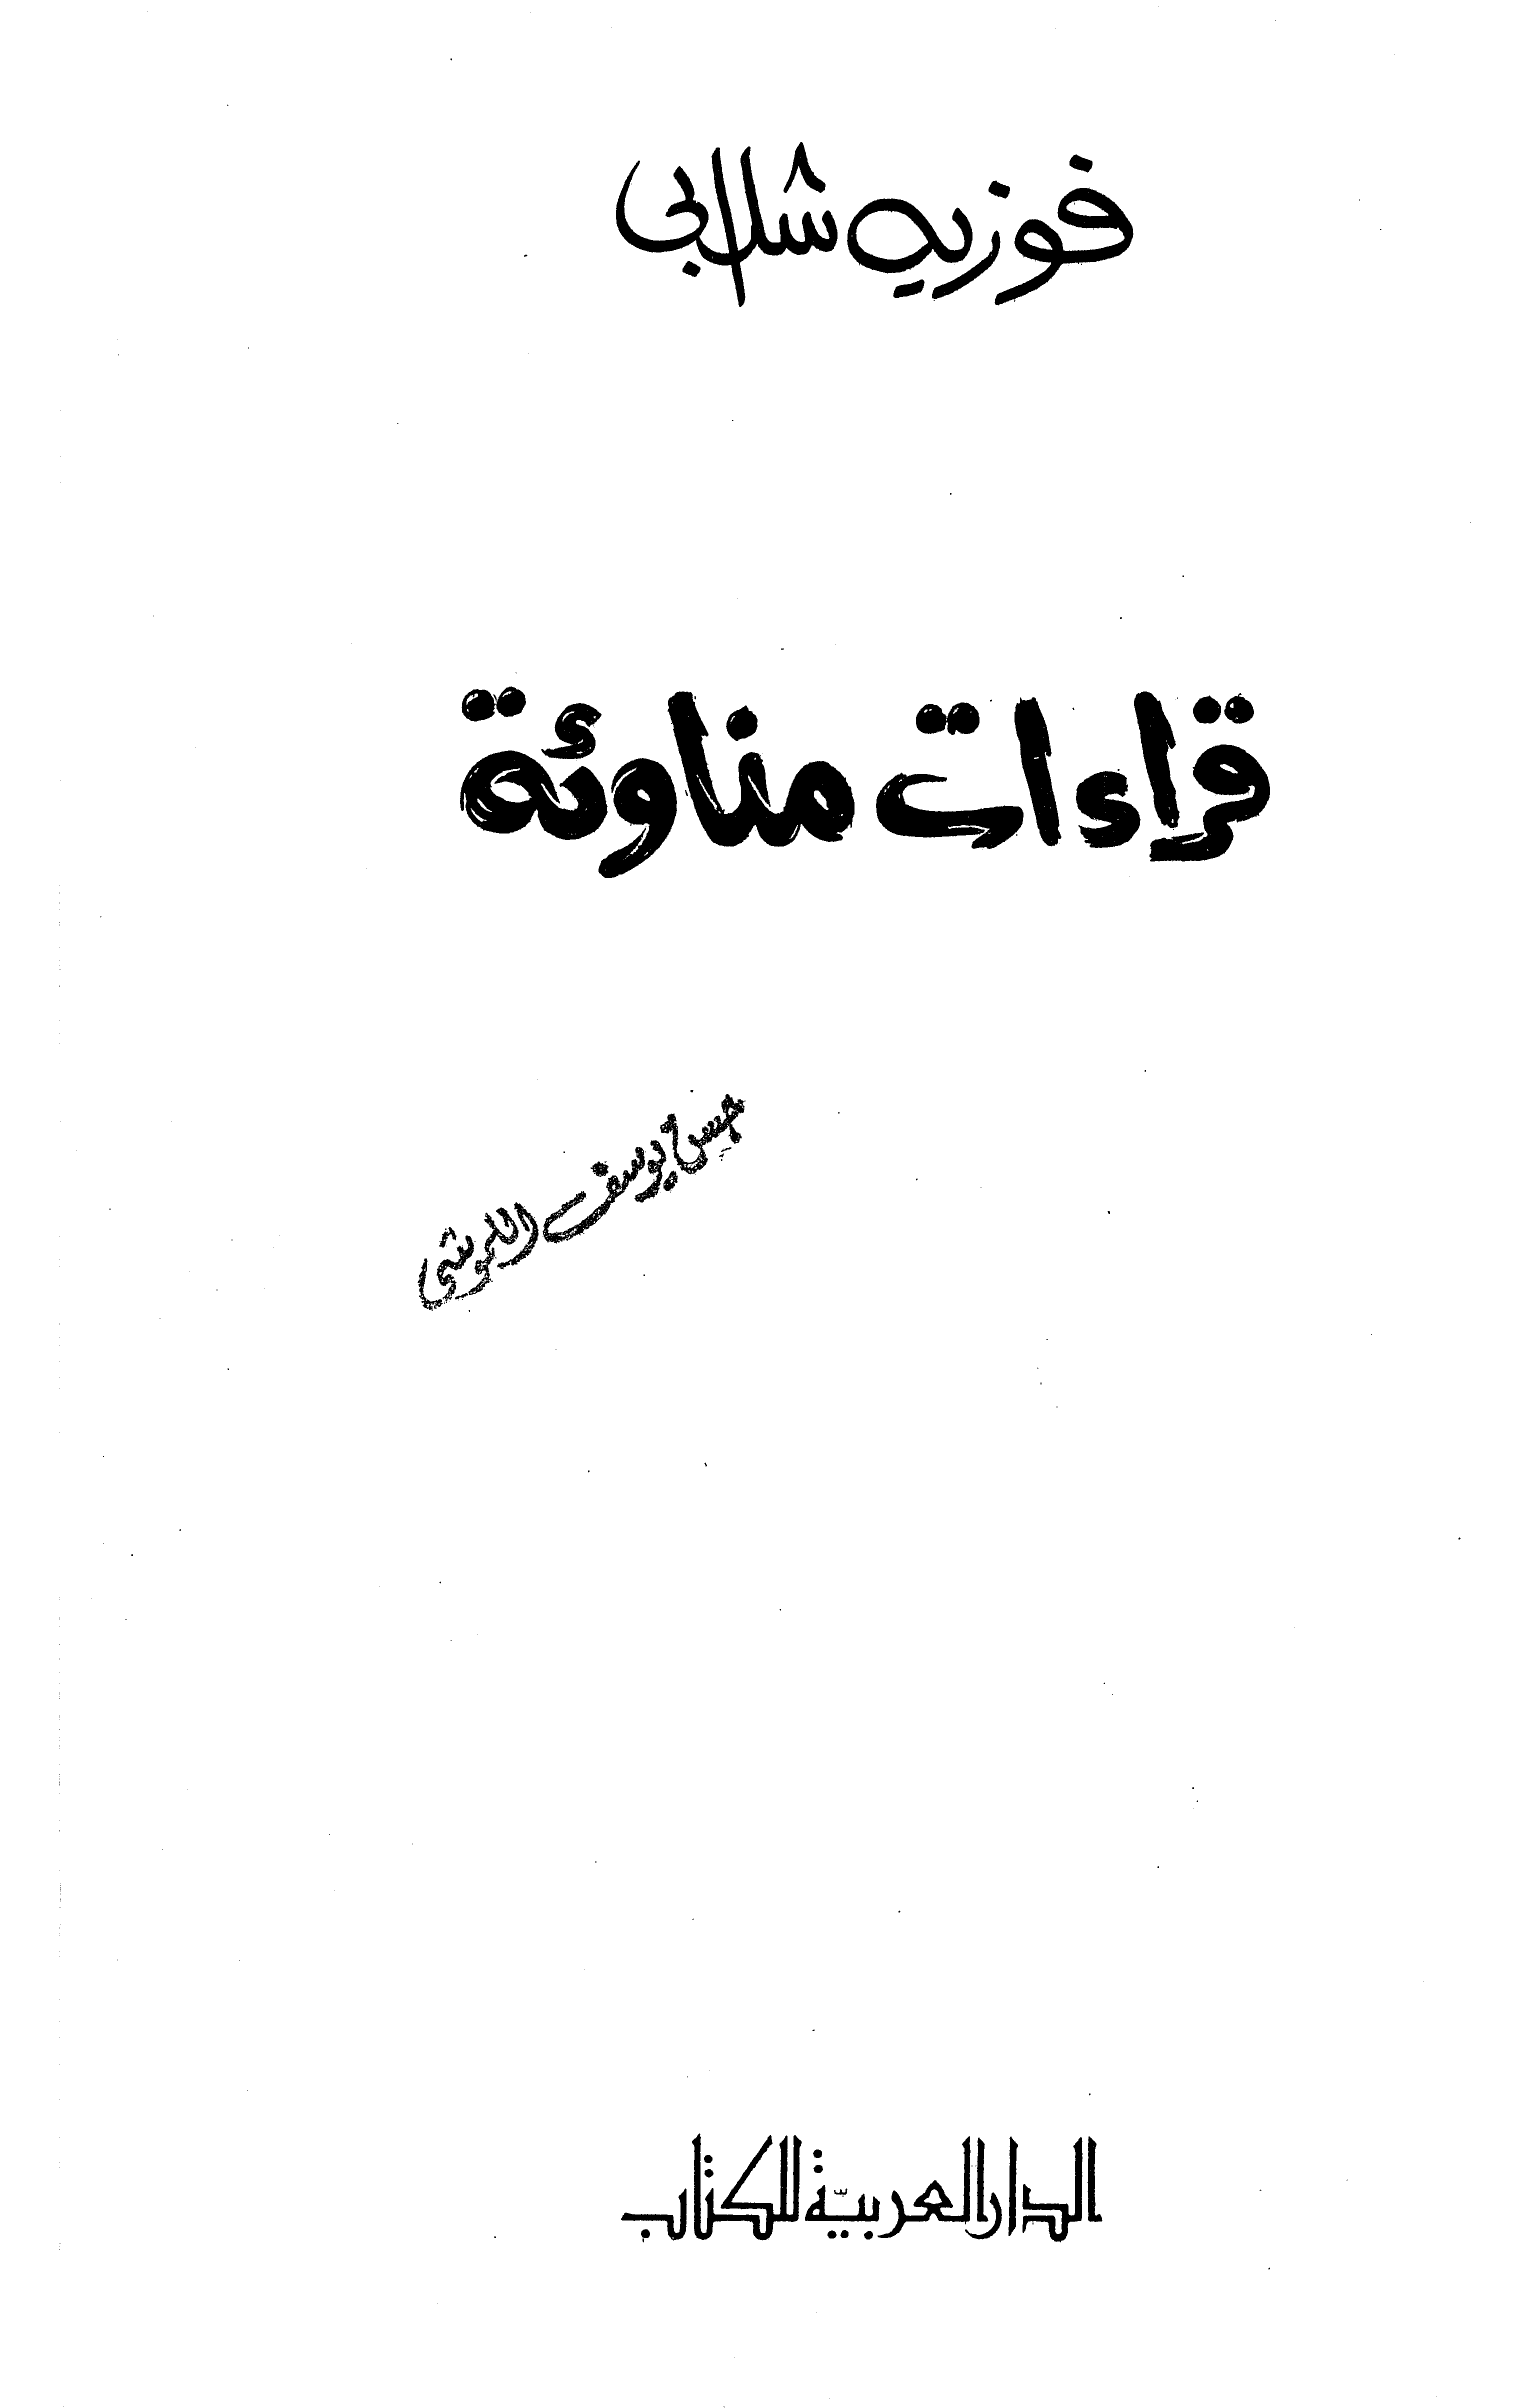 فوزيه شلابي
قراءات مناوئة
يوسف
الدار العربيّة للكتاب